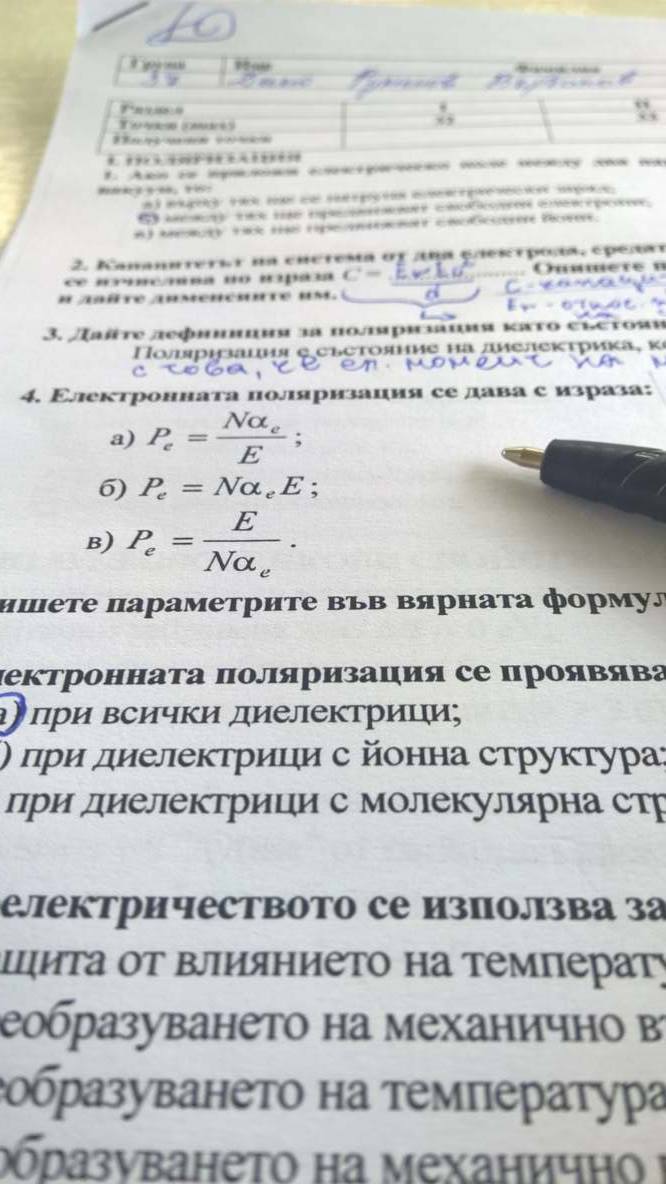 Група Име Фамилия
Раздел I II
Точки (макс)
Получени точки
I. ПОЛЯРИЗАЦИЯ
1. Ако се приложи електрическо поле между два
вакуум, то:
а) върху тях ще се натрупа електрически заряд;
б) между тях ще се предвижват свободни електрони;
в) между тях ще се предвижват свободни йони.
2. Капацитетът на система от два електрода, средата
се изчислява по израза C = ........ Опишете
и дайте дименсиите им.
3. Дайте дефиниция за поляризация като състоян
Поляризация е състояние на диелектрика, ко
с това, че ел. момент на
4. Електронната поляризация се дава с израза:
а) Pₑ = Nαₑ / E ;
б) Pₑ = NαₑE ;
в) Pₑ = E / Nαₑ .
ишете параметрите във вярната формул
лектронната поляризация се проявява
а) при всички диелектрици;
) при диелектрици с йонна структура;
при диелектрици с молекулярна стр
електричеството се използва за
ащита от влиянието на температу
еобразуването на механично въ
еобразуването на температура
образуването на механично